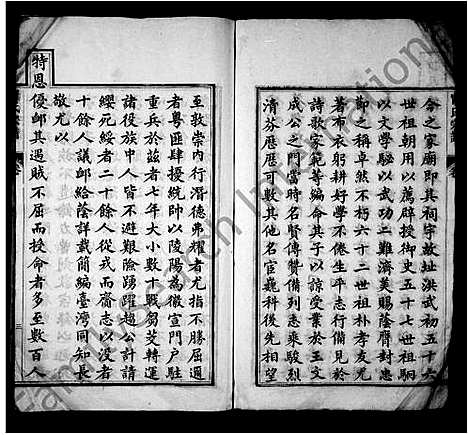 今之家廟即其祠宇故址洪武初五十六
世祖朝用以薦辟授御史五十七世祖駉
以文學騐以武功二難濟美賜蔭膺封惠
鄞之辭卓然不朽六十二世祖朴孝友允
著布衣躬耕好學不倦生平志行備見於
詩歌家範等編命其子以諒受業於王文
成公之門當時名賢傳贊備列悉乘駿烈
清芬歷歷可數其他名宦巍科後先相望
至敦崇內行潛德弗耀者尤指不勝屈適
者粵匪肆擾統帥以陵陽為徽宣門戶駐
重兵於茲者七年大小數十戰芻茭轉運
諸役族中人皆不避艱險踴躍趨公計請
纓死綏者二十餘人從戎而齎志以沒者
十餘人議卹給蔭詳載簡編臺灣同知長
敬尤以
特恩優卹其遇賊不屈而授命者多至數百人
三
FamilySearch International